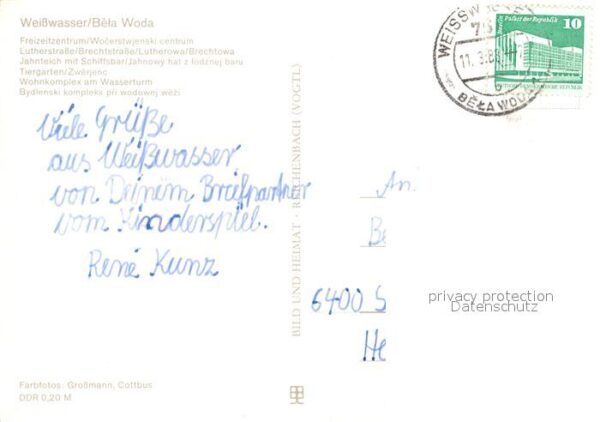 Weißwasser/Běła Woda
Freizeitzentrum/Wočerstwjenski centrum
Lutherstraße/Brechtstraße/Lutherowa/Brechtowa
Jahnteich mit Schiffsbar/Jahnowy hat z łódźnej baru
Tiergarten/Zwěrjenc
Wohnkomplex am Wasserturm
Bydlenski kompleks při wodowej wěži
Viele Grüße
aus Weißwasser
von Deinem Briefpartner
vom Kinderspiel.
René Kunz
Farbfotos: Großmann, Cottbus
DDR 0,20 M
BILD UND HEIMAT · REICHENBACH (VOGTL)
WEISSWASSER
11.3.86
b
BĚŁA WODA
Berlin, Palast der Republik
10
DEUTSCHE DEMOKRATISCHE REPUBLIK
An
Be
6400 S
He
privacy protection
Datenschutz